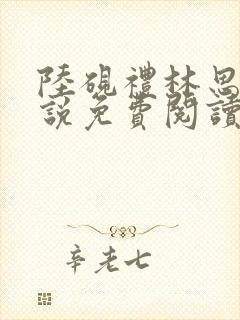 陸硯禮林思
說免費閱讀
辛老七